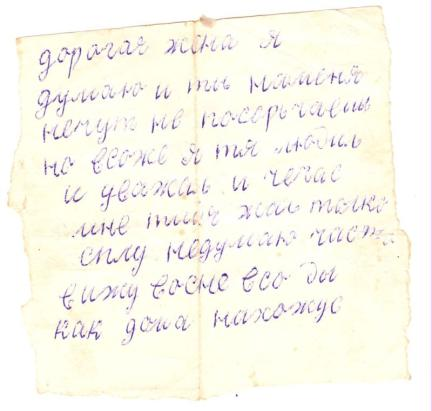 дорогая жена я
думаю и ты наменя
нечут не посерьчаеш
но всоже я тя любиль
и уважаль и чечас
мне тибя жаль толко
сплу недумаю часто
вижу восне всо ды
как дома нахожус